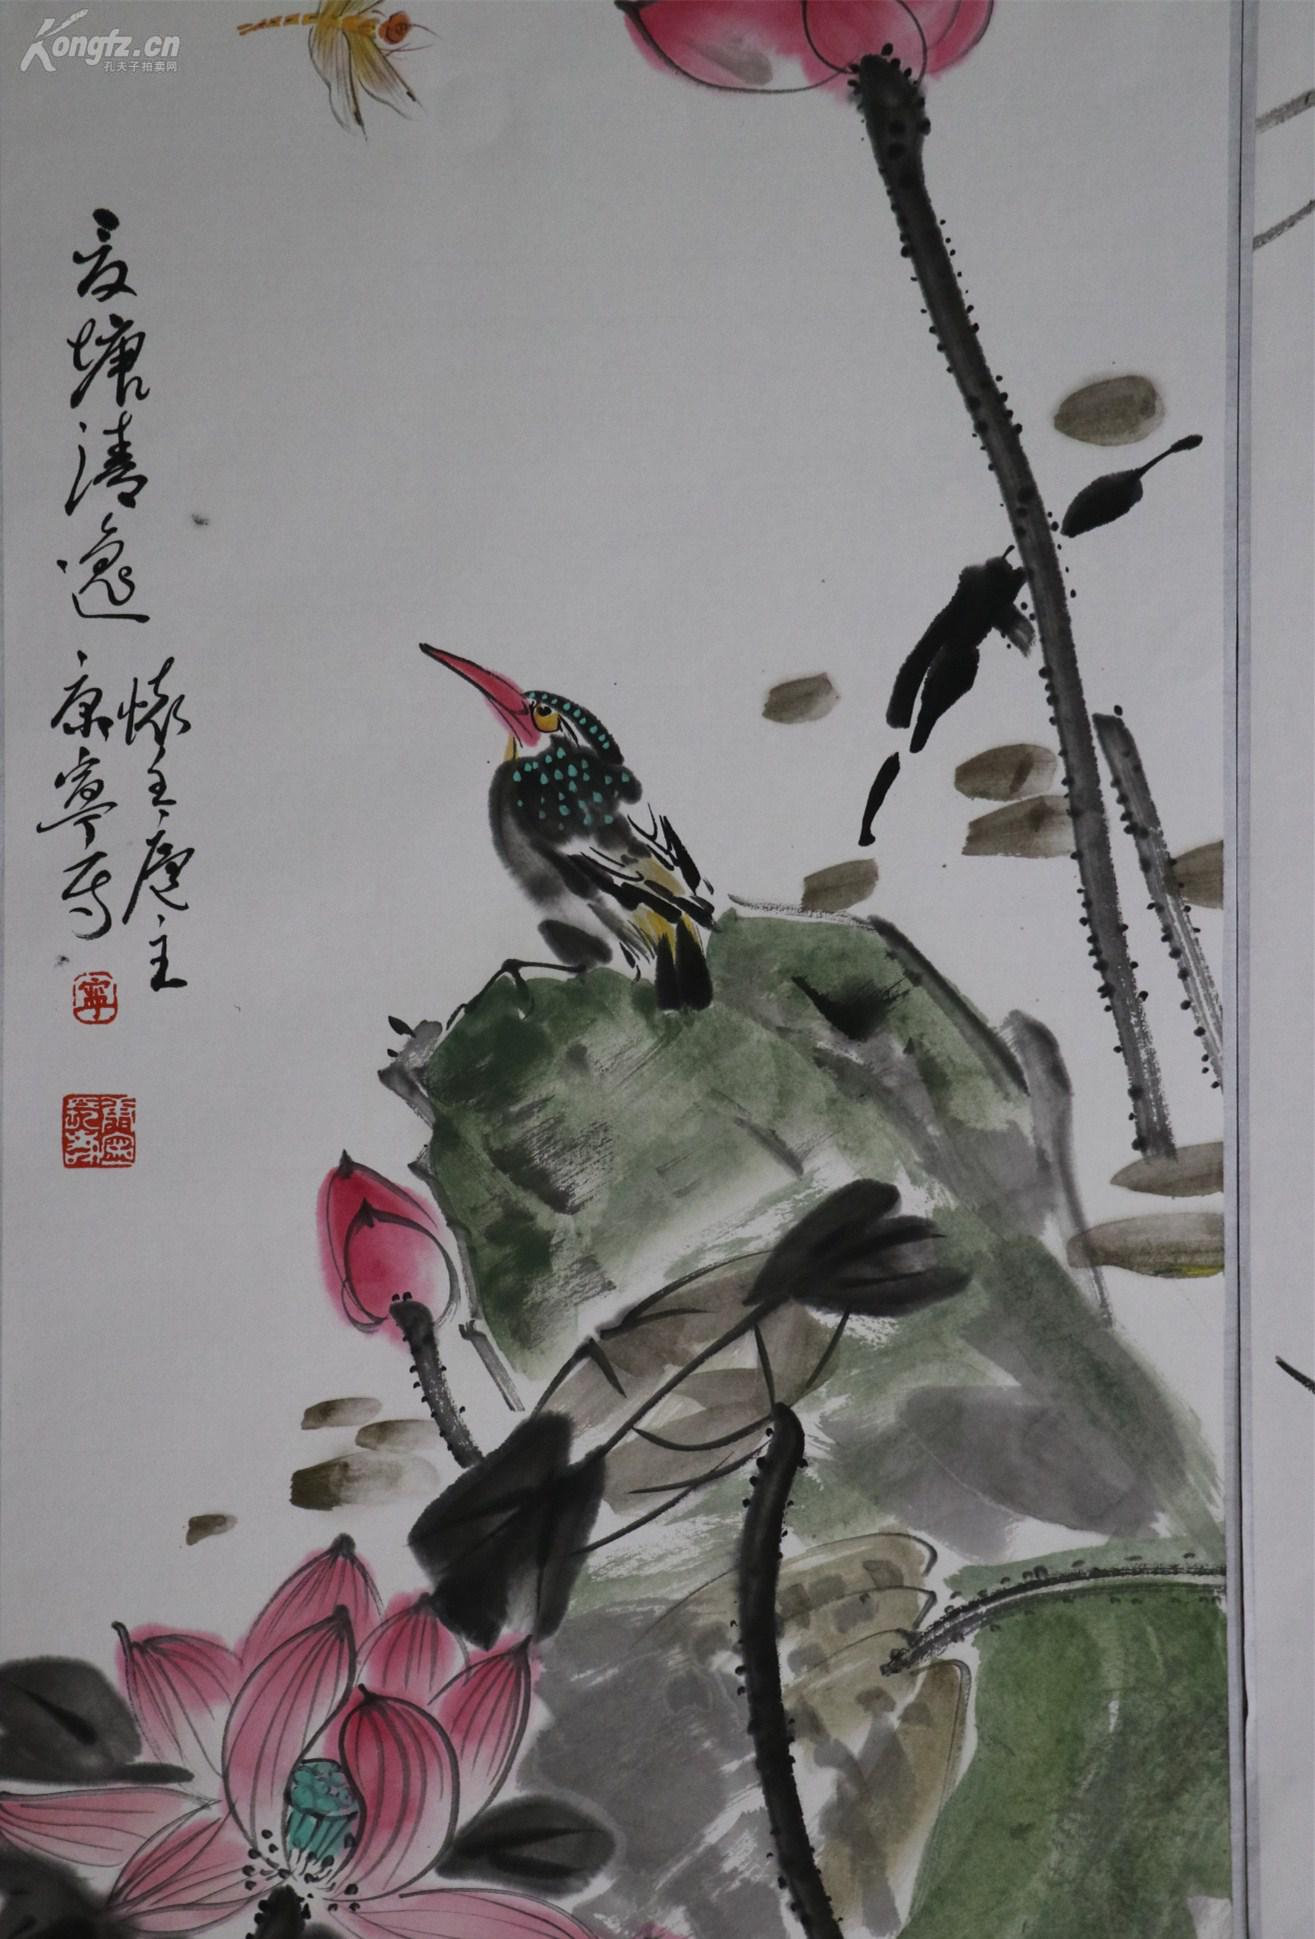 Kongfz.cn
孔夫子拍卖网
夏塘清逸
怀玉庐主
康宁写
宁